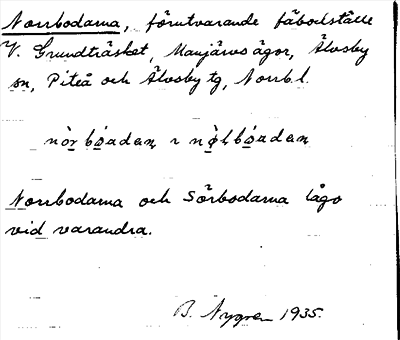 Norrbodarna, förutvarande fäbodställe
V. Grundträsket, Manjärvs ägor, Älvsby
sn, Piteå och Älvsby tg, Norrb. l.
Norrbodarna och Sörbodarna lågo
vid varandra.
B. Nygren 1935.